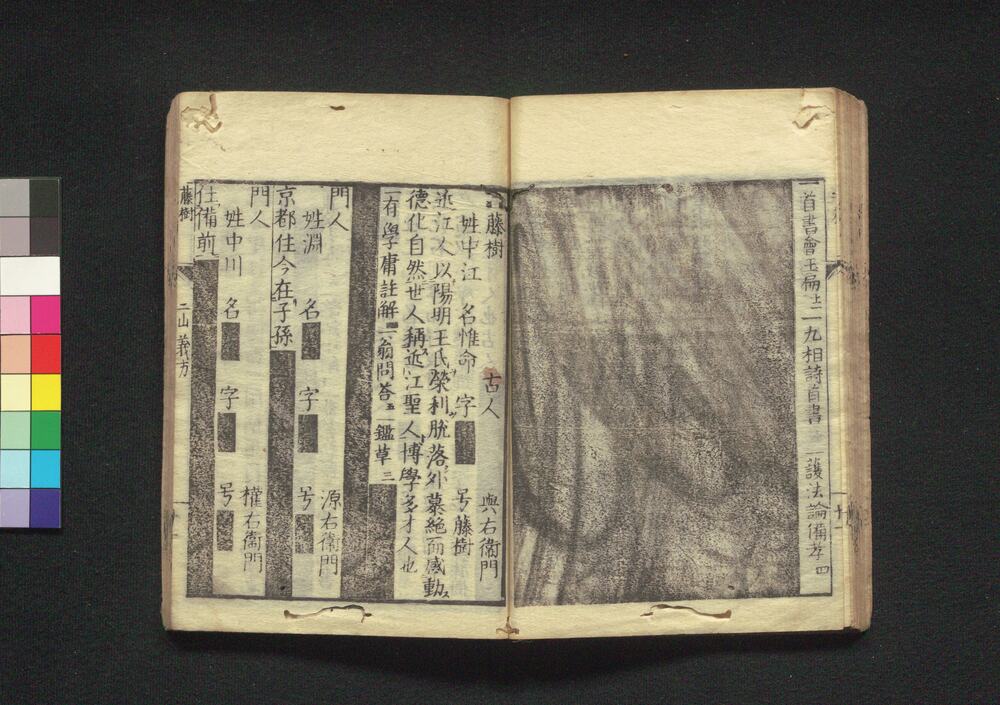 一首書會玉扁上二 九相詩首書 一護法論備考四
藤樹 古人 與右衞門
姓中江 名惟命 字 号藤樹
近江人以陽明王氏榮利脱落外慕絶而感動ス
德化自然世人稱近江聖人博學多才人也
一有學庸註解 一翁問答五 一鑑草三
門人 源右衞門
姓淵 名 字 号
京都住今在子孫
門人 權右衞門
姓中川 名 字 号
住備前
藤樹 二山義方